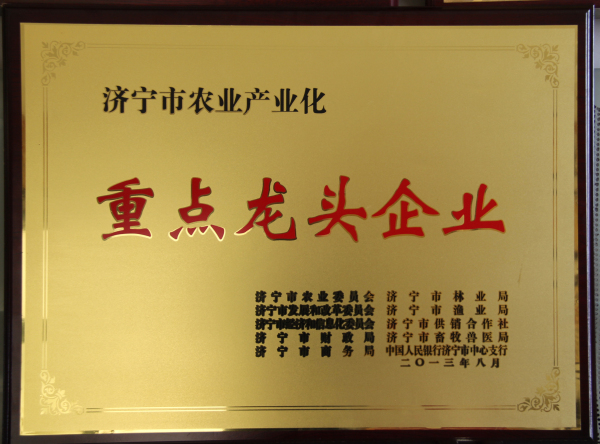 济宁市农业产业化
重点龙头企业
济宁市农业委员会 济宁市林业局
济宁市发展和改革委员会 济宁市渔业局
济宁市经济和信息化委员会 济宁市供销合作社
济宁市财政局 济宁市畜牧兽医局
济宁市商务局 中国人民银行济宁市中心支行
二〇一三年八月